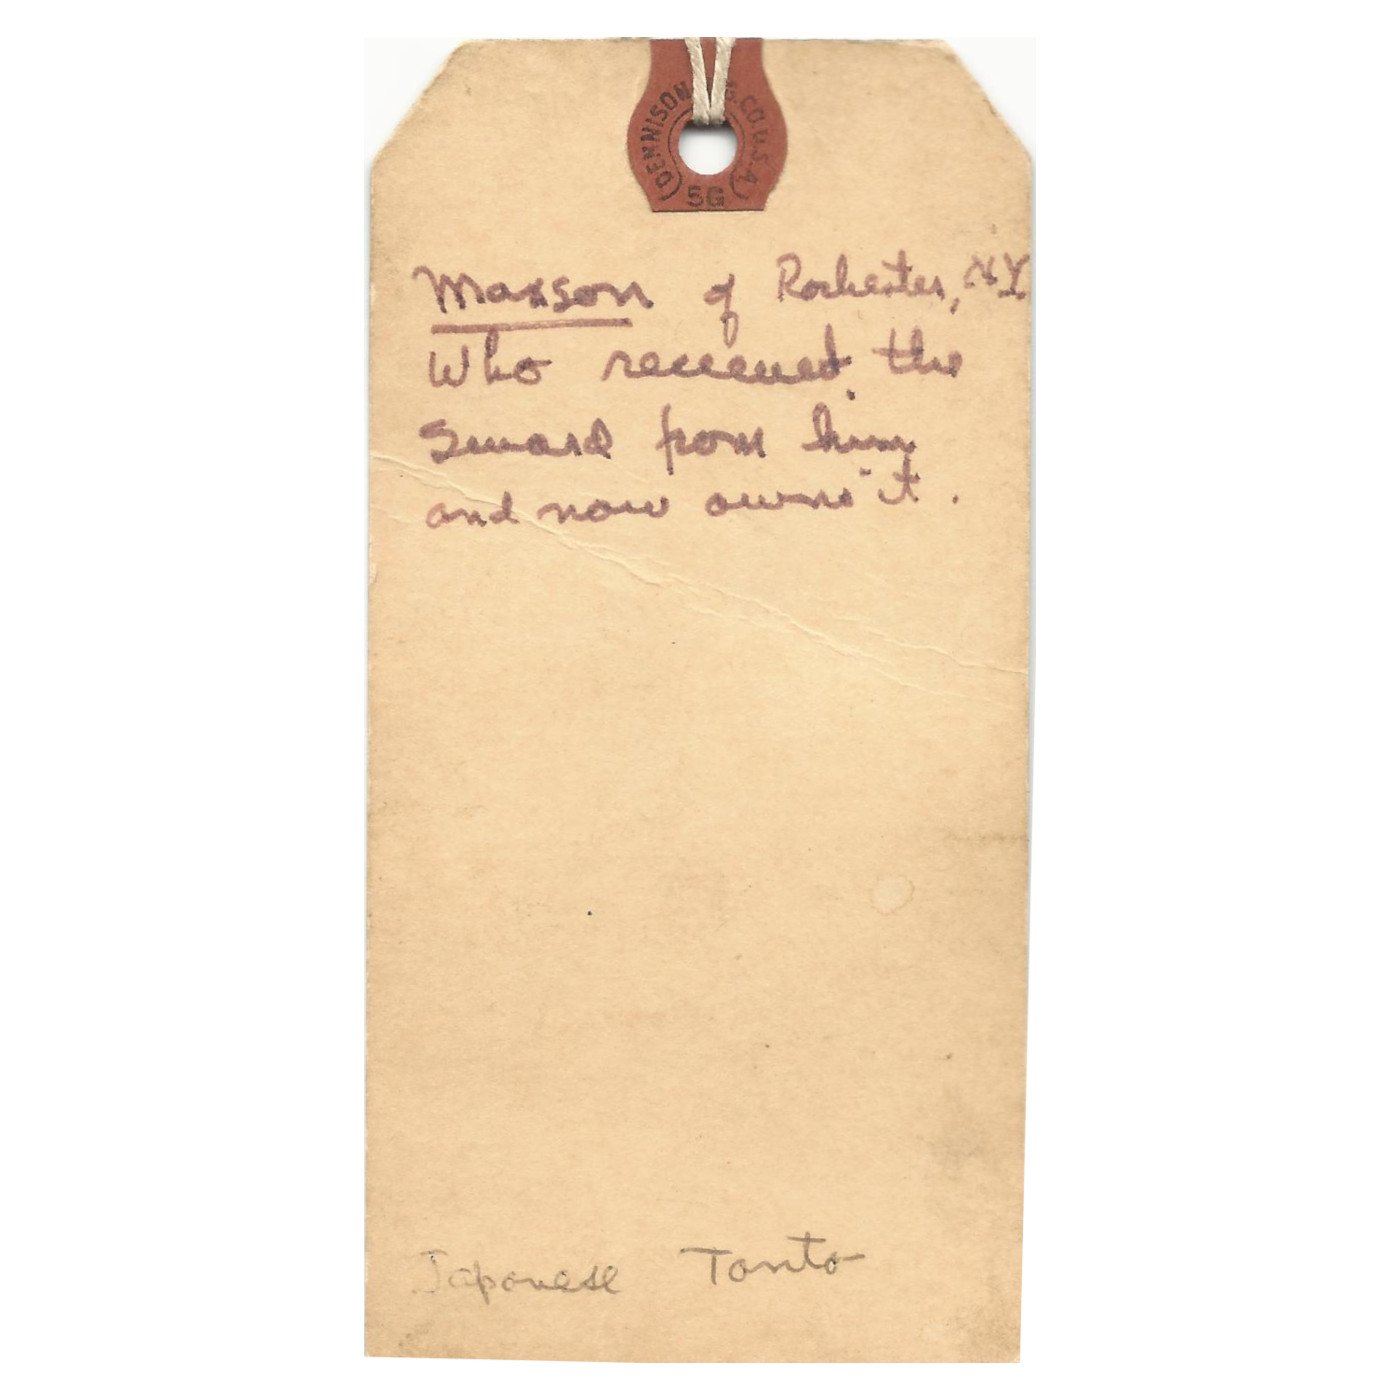 (DENNISON MFG.CO.U.S.A.)
5G
Maxson of Rochester, N.Y.
Who received the
Sword from him
and now owns it.
Japanese Tanto